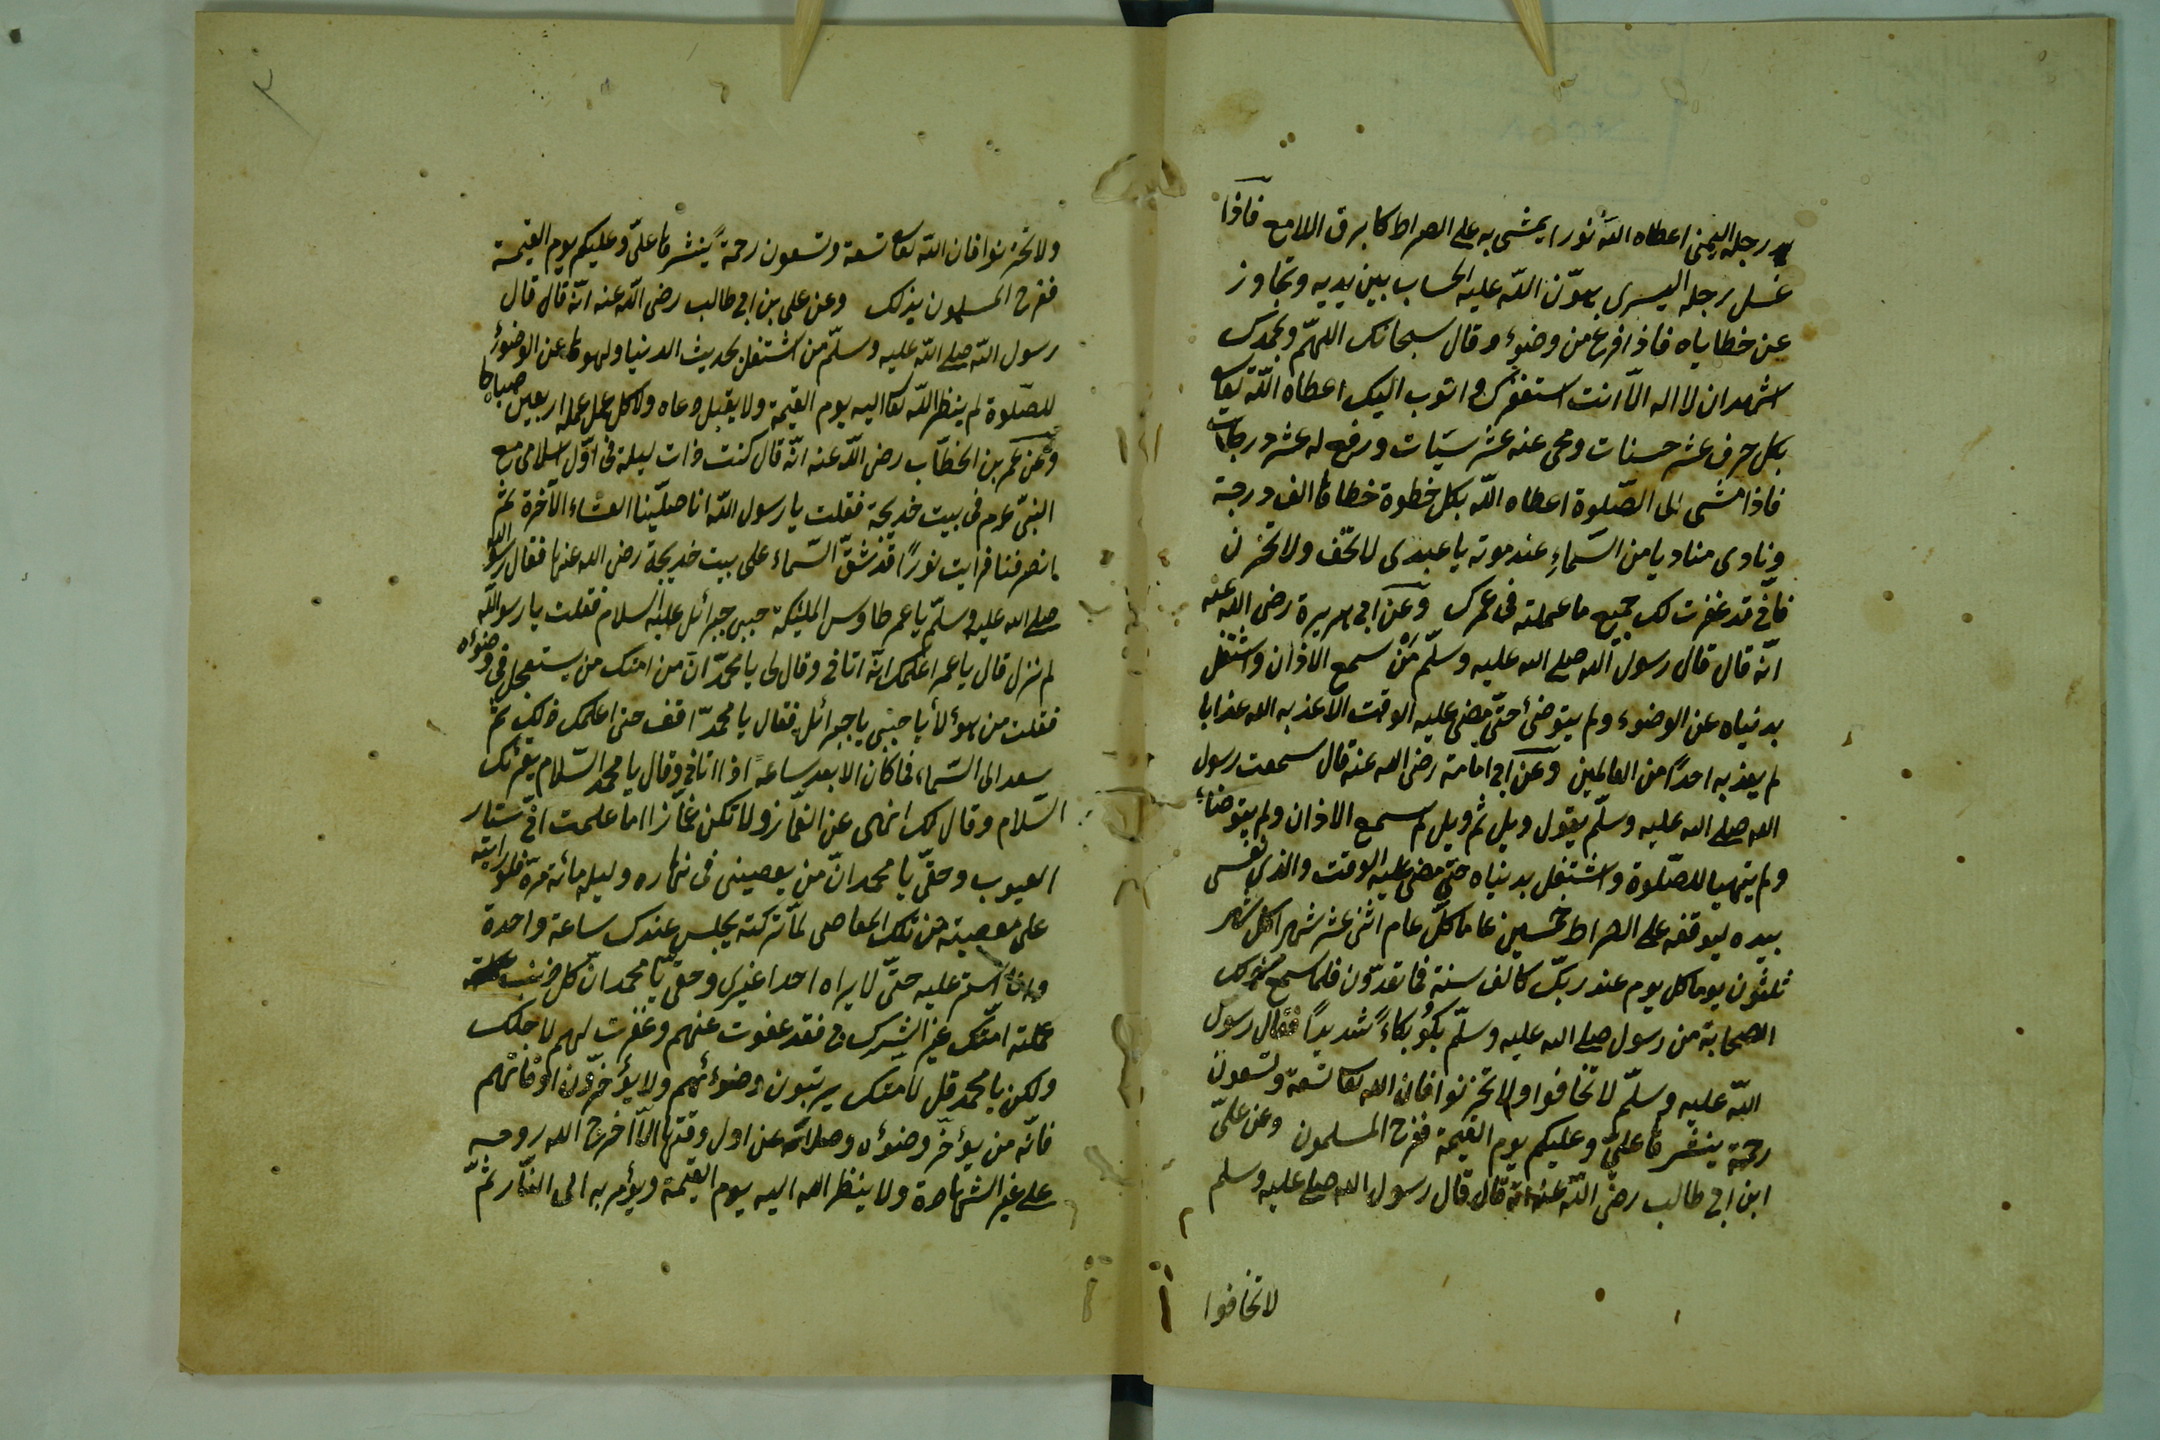 رجله اليمنى اعطاه الله نورا يمشى به على الصراط كابرق اللامع فاذا
غسل رجله اليسرى يهوّن الله عليه الحساب بين يديه وتجاوز
عن خطاياه فاذا فرغ من وضوء وقال سبحانك اللهمّ وبحمدك
اشهد ان لا اله الّا انت استغفرك واتوب اليك اعطاه الله تعالى
بكل حرف عشر حسنات ومحى عنه عشر سيّات ورفع له عشر درجات
فاذا مشى الى الصّلوة اعطاه الله بكل خطوة خطاها الف درجة
ونادى مناديا من السّماء عند موته يا عبدى لا تخف ولا تحزن
فانّى قد غفرت لك جميع ما عملته فى عمرك وعن ابى هريرة رضى الله عنه
انّه قال قال رسول الله صلى الله عليه وسلّم من سمع الاذان واشتغل
بدنياه عن الوضوء ولم يتوضئ حتّى مضى عليه الوقت الا عذبه الله عذابا
لم يعذبه احدا من العالمين وعن ابى امامة رضى الله عنه قال سمعت رسول
الله صلى الله عليه وسلّم يقول ويل ثم ويل لم سمع الاذان ولم يتوضاء
ولم يتهيا للصّلوة واشتغل بدنياه حتى مضى عليه الوقت والذى نفسى
بيده ليوقفه على الصراط خمسين عاما كلّ عام اثنى عشر شهرا كل شهر
ثلثون يوما كل يوم عند ربّك كالف سنة مما تعدّون فلما سمع ذلك
الصحابة من رسول صلى الله عليه وسلّم بكو بكاءً شديدا فقال رسول
الله عليه وسلّم لا تخافوا ولا تحزنوا فان الله تعا تسعة وتسعون
رحمة ينشرها علىّ وعليكم يوم القيمة ففرح المسلمون وعن علىّ
ابن ابى طالب رضى الله عنه انّه قال قال رسول الله صلى عليه وسلم
لا تخافوا
ولا تحزنوا فان الله تعالى تسعة وتسعون رحمة ينشرها علىّ وعليكم يوم القيمة
ففرح المسلمون بذلك وعن على بن ابى طالب رضى الله عنه انّه قال قال
رسول الله صلى الله عليه وسلّم من اشتغل بحديث الدنيا ولهوها عن الوضوء
للصّلوة لم ينظر الله تعا اليه يوم القيمة ولا يقبل دعاه ولا كل عمل عمله اربعين صباحا
وعن عمر بن الخطّاب رضى الله عنه انّه قال كنت ذات ليلة فى اوّل اسلامى مع
النبىّ عم فى بيت خديجة فقلت يا رسول الله انا صلّينا العشاء الآخرة ثمّ
انصرفنا فرايت نورًا قد شقّ السّماء على بيت خديجة رضى الله عنها فقال رسول الله
صلى الله عليه وسلّم يا عمر طاوس الملئكة حبيبى جبرائل عليه السلام فقلت يا رسول الله
لم نزل قال يا عمر اعلمك انّه اتانى وقال لى يا محمّد انّ من امتك من يستعجل فى وضوءه
فقلت من هؤلأ يا حبيبى يا جبرائل فقال يا محمدّ اقف حتى اعلمك ذلك ثمّ
سعد الى السّماء فما كان الا بعد ساعة اذا اتانى وقال يا محمد السّلام يقرئك
السّلام وقال لك انهى عن الغمّاز ولا تكن غمّازا اما علمت انّى ستار
العيوب وحقّى يا محمد انّ من يعصينى فى نهاره وليله مائة مرّة فلو رايته
على معصيته من تلك المعاصى لما تركته يجلس عندك ساعة واحدة
وانا استر عليه حتّى لا يراه احدا غيرى وحقى يا محمد انّ كل ذنب
عملته امّتك غير الشرك فقد عفوت عنهم وغفرت لهم لاجلك
ولكن يا محمد قل لامتك يرتبون وضوئهم ولا يؤخرّون اوقاتهم
فانّه من يؤخّر وضوءه وصلاته عن اول وقتها الّا اخرج الله روحه
على غير الشهادة ولا ينظر الله اليه يوم القيمة ويؤمر به الى النّار ثمّ